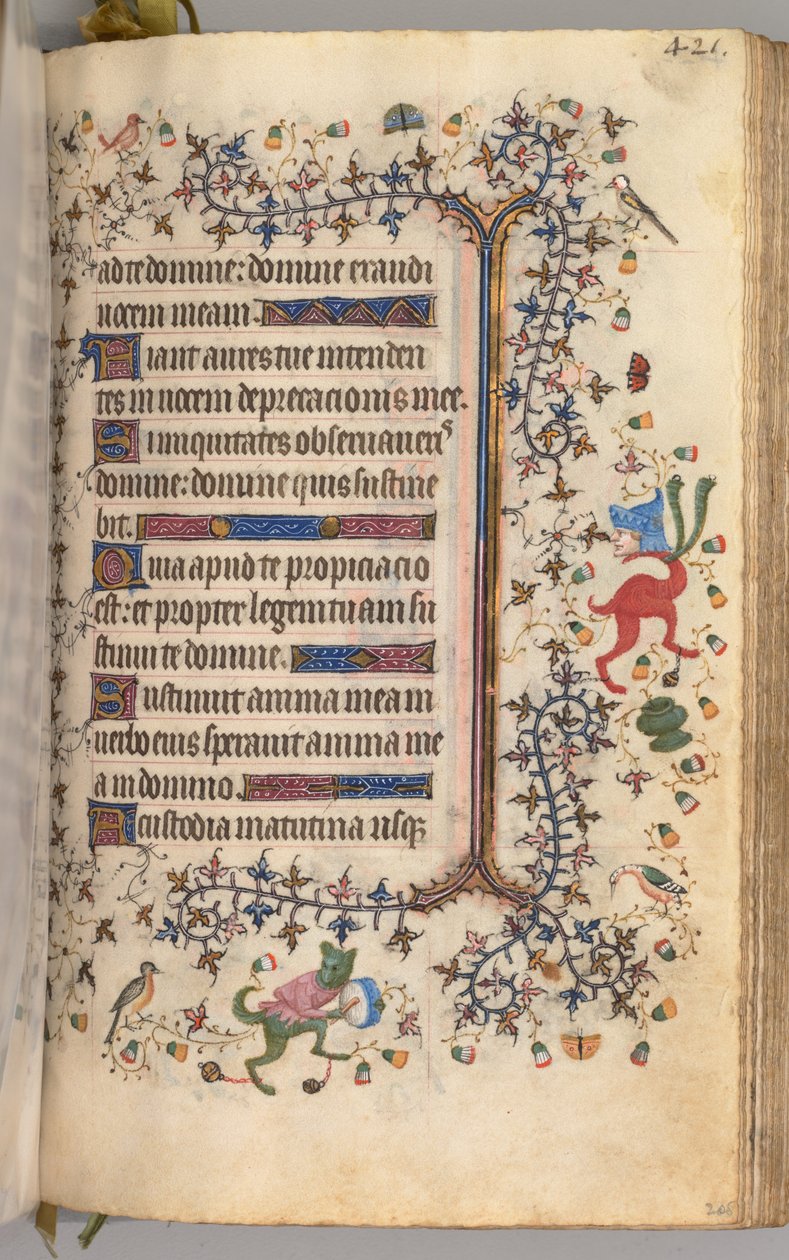 421.
ad te domine: domine exaudi
uocem meam.
Fiant aures tue intenden
tes in uocem deprecacionis mee.
Si iniquitates obseruauerꝭ
domine: domine quis sustine
bit.
Quia apud te propiciacio
est: et propter legem tuam su
stinui te domine.
Sustinuit anima mea in
uerbo eius sperauit anima me
a in domino.
A custodia matutina usqꝫ